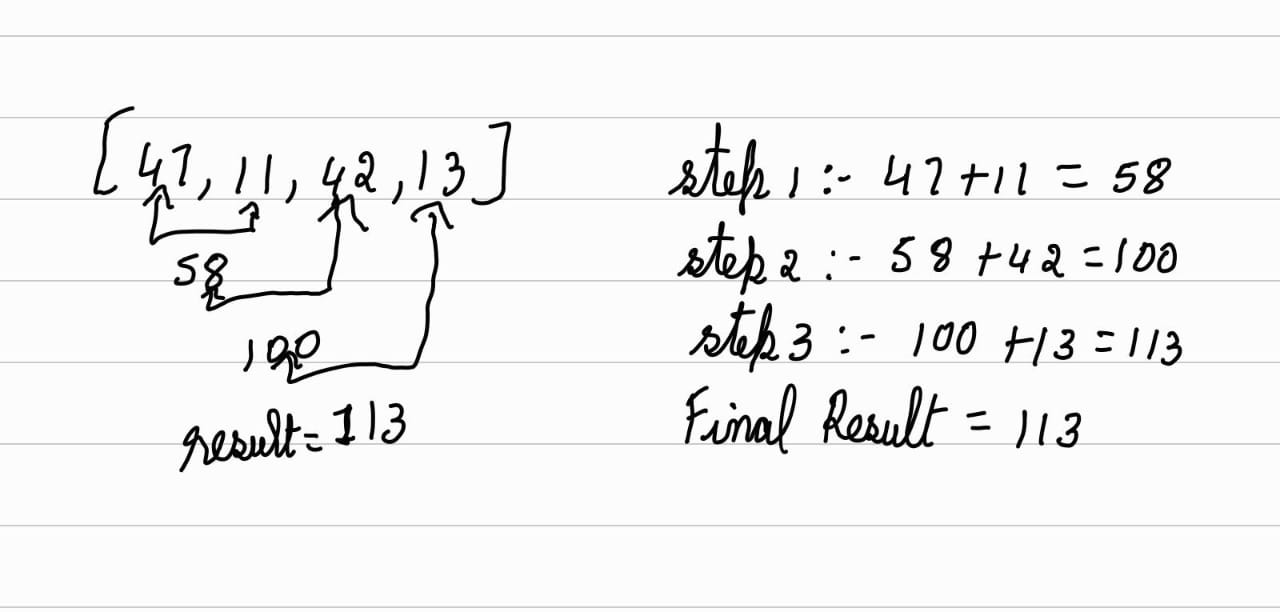 [47, 11, 42, 13]
58
100
result = 113
step 1 :- 47+11 = 58
step 2 :- 58 +42 =100
step 3 :- 100 +13 =113
Final Result = 113